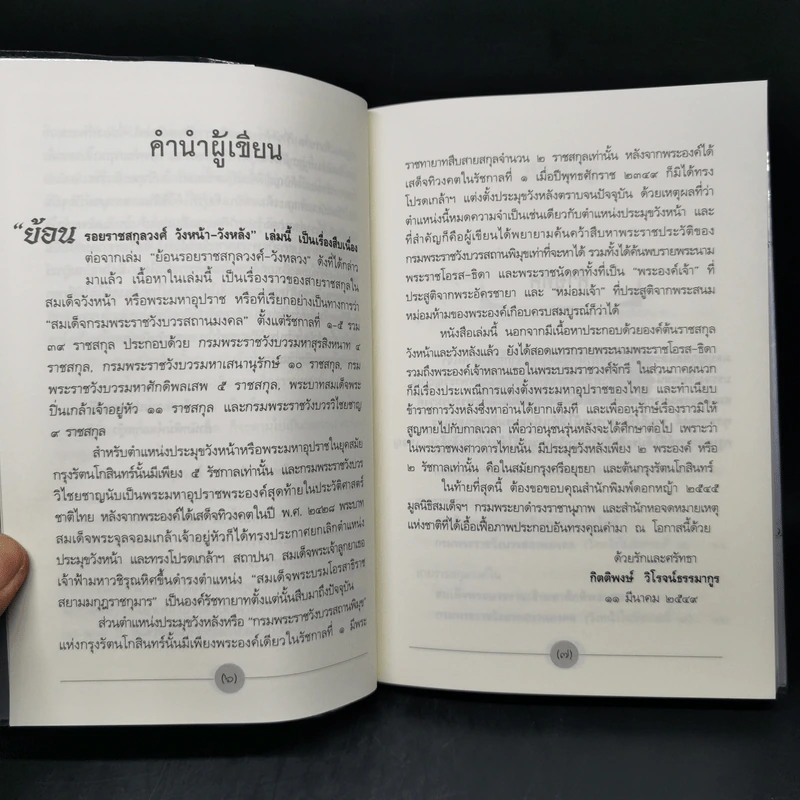 คำนำผู้เขียน
“ย้อน รอยราชสกุลวงศ์ วังหน้า-วังหลัง” เล่มนี้ เป็นเรื่องสืบเนื่อง
ต่อจากเล่ม “ย้อนรอยราชสกุลวงศ์-วังหลวง” ดังที่ได้กล่าว
มาแล้ว เนื้อหาในเล่มนี้ เป็นเรื่องราวของสายราชสกุลใน
สมเด็จวังหน้า หรือพระมหาอุปราช หรือที่เรียกอย่างเป็นทางการว่า
“สมเด็จกรมพระราชวังบวรสถานมงคล” ตั้งแต่รัชกาลที่ ๑-๕ รวม
๓๙ ราชสกุล ประกอบด้วย กรมพระราชวังบวรมหาสุรสิงหนาท ๔
ราชสกุล, กรมพระราชวังบวรมหาเสนานุรักษ์ ๑๐ ราชสกุล, กรม
พระราชวังบวรมหาศักดิพลเสพ ๕ ราชสกุล, พระบาทสมเด็จพระ
ปิ่นเกล้าเจ้าอยู่หัว ๑๑ ราชสกุล และกรมพระราชวังบวรวิไชยชาญ
๙ ราชสกุล
สำหรับตำแหน่งประมุขวังหน้าหรือพระมหาอุปราชในยุคสมัย
กรุงรัตนโกสินทร์นั้นมีเพียง ๕ รัชกาลเท่านั้น และกรมพระราชวังบวร
วิไชยชาญนับเป็นพระมหาอุปราชพระองค์สุดท้ายในประวัติศาสตร์
ชาติไทย หลังจากพระองค์ได้เสด็จทิวงคตในปี พ.ศ. ๒๔๒๘ พระบาท
สมเด็จพระจุลจอมเกล้าเจ้าอยู่หัวก็ได้ทรงประกาศยกเลิกตำแหน่ง
ประมุขวังหน้า และทรงโปรดเกล้าฯ สถาปนา สมเด็จพระเจ้าลูกยาเธอ
เจ้าฟ้ามหาวชิรุณหิศขึ้นดำรงตำแหน่ง “สมเด็จพระบรมโอรสาธิราช
สยามมกุฎราชกุมาร” เป็นองค์รัชทายาทตั้งแต่นั้นสืบมาถึงปัจจุบัน
ส่วนตำแหน่งประมุขวังหลังหรือ “กรมพระราชวังบวรสถานพิมุข”
แห่งกรุงรัตนโกสินทร์นั้นมีเพียงพระองค์เดียวในรัชกาลที่ ๑ มีพระ
(๖)
ราชทายาทสืบสายสกุลจำนวน ๒ ราชสกุลเท่านั้น หลังจากพระองค์ได้
เสด็จทิวงคตในรัชกาลที่ ๑ เมื่อปีพุทธศักราช ๒๓๔๙ ก็มิได้ทรง
โปรดเกล้าฯ แต่งตั้งประมุขวังหลังตราบจนปัจจุบัน ด้วยเหตุผลที่ว่า
ตำแหน่งนี้หมดความจำเป็นเช่นเดียวกับตำแหน่งประมุขวังหน้า และ
ที่สำคัญก็คือผู้เขียนได้พยายามค้นคว้าสืบหาพระราชประวัติของ
กรมพระราชวังบวรสถานพิมุขเท่าที่จะหาได้ รวมทั้งได้ค้นพบรายพระนาม
พระราชโอรส-ธิดา และพระราชนัดดาทั้งที่เป็น “พระองค์เจ้า” ที่
ประสูติจากพระอัครชายา และ “หม่อมเจ้า” ที่ประสูติจากพระสนม
หม่อมห้ามของพระองค์เกือบครบสมบูรณ์ก็ว่าได้
หนังสือเล่มนี้ นอกจากมีเนื้อหาประกอบด้วยองค์ต้นราชสกุล
วังหน้าและวังหลังแล้ว ยังได้สอดแทรกรายพระนามพระราชโอรส-ธิดา
รวมถึงพระองค์เจ้าหลานเธอในพระบรมราชวงศ์จักรี ในส่วนภาคผนวก
ก็มีเรื่องประเพณีการแต่งตั้งพระมหาอุปราชของไทย และทำเนียบ
ข้าราชการวังหลังซึ่งหาอ่านได้ยากเต็มที และเพื่ออนุรักษ์เรื่องราวมิให้
สูญหายไปกับกาลเวลา เพื่อว่าอนุชนรุ่นหลังจะได้ศึกษาต่อไป เพราะว่า
ในพระราชพงศาวดารไทยนั้น มีประมุขวังหลังเพียง ๒ พระองค์ หรือ
๒ รัชกาลเท่านั้น คือในสมัยกรุงศรีอยุธยา และต้นกรุงรัตนโกสินทร์
ในท้ายที่สุดนี้ ต้องขอขอบคุณสำนักพิมพ์ดอกหญ้า ๒๕๔๕
มูลนิธิสมเด็จฯ กรมพระยาดำรงราชานุภาพ และสำนักหอจดหมายเหตุ
แห่งชาติที่ได้เอื้อเฟื้อภาพประกอบอันทรงคุณค่ามา ณ โอกาสนี้ด้วย
ด้วยรักและศรัทธา
กิตติพงษ์ วิโรจน์ธรรมากูร
๑๑ มีนาคม ๒๕๔๙
(๗)